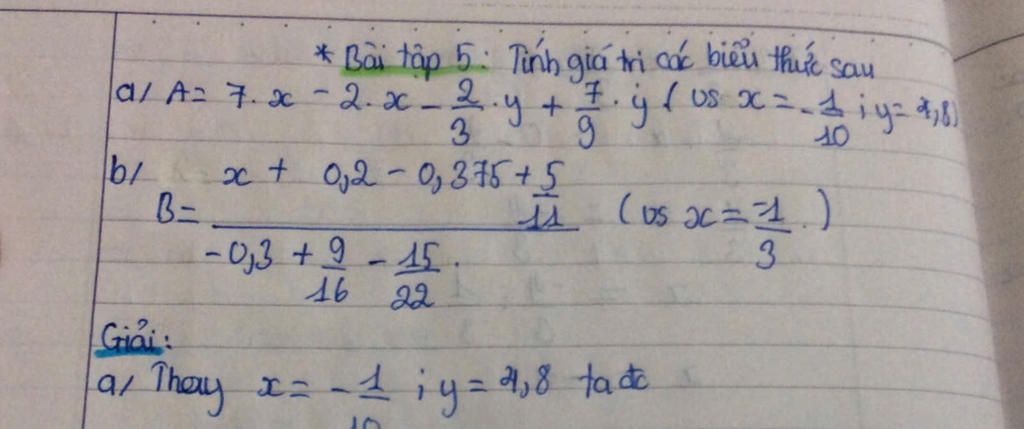 * Bài tập 5: Tính giá trị các biểu thức sau
a/ A = 7.x - 2.x - 2/3 .y + 7/9 .y ( vs x = -1/10 ; y = 4,8)
b/ x + 0,2 - 0,375 + 5/11
B = ( vs x = -1/3 .)
-0,3 + 9/16 - 15/22 .
Giải:
a/ Thay x = - 1/10 ; y = 4,8 ta đc